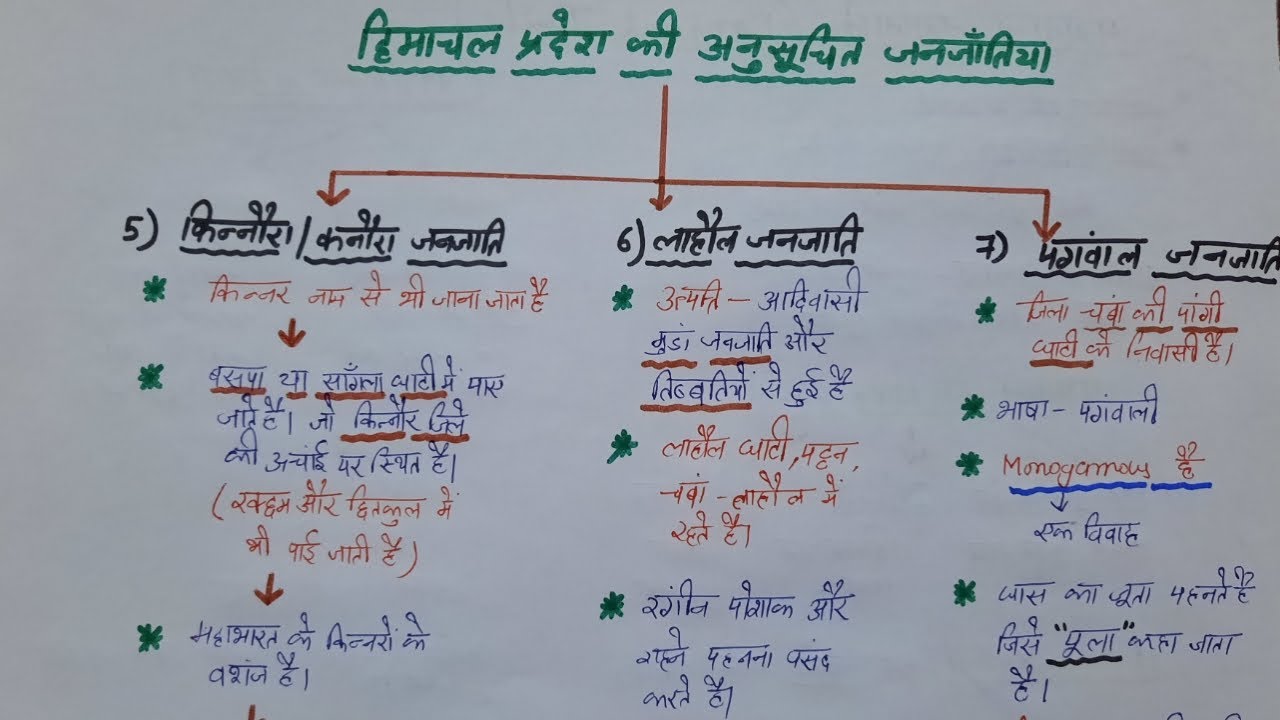 हिमाचल प्रदेश की अनुसूचित जनजाँतिया
5) किन्नौरा/कनौरा जनजाति
* किन्नर नाम से भी जाना जाता है
* बसपा या साँगला घाटी में पाए
जाते है। जो किन्नौर जिले
की अचांई पर स्थित है।
(रक्छम और छितकुल में
भी पाई जाती है)
* महाभारत के किन्नरों के
वशंज है।
6) लाहौल जनजाति
* उत्पति - आदिवासी
मुडां जनजाति और
तिब्बतियों से हुई है
* लाहौल घाटी, पट्टन,
चबां - लाहौल में
रहते है।
* रंगीन पोशाक और
गहने पहनना पसंद
करते है।
7) पगंवाल जनजाति
* जिला चबां की पांगी
घाटी के निवासी है।
* भाषा - पगंवाली
* Monogamous है
एक विवाह
* घास का जूता पहनते है
जिसे "पूला" कहा जाता
है।